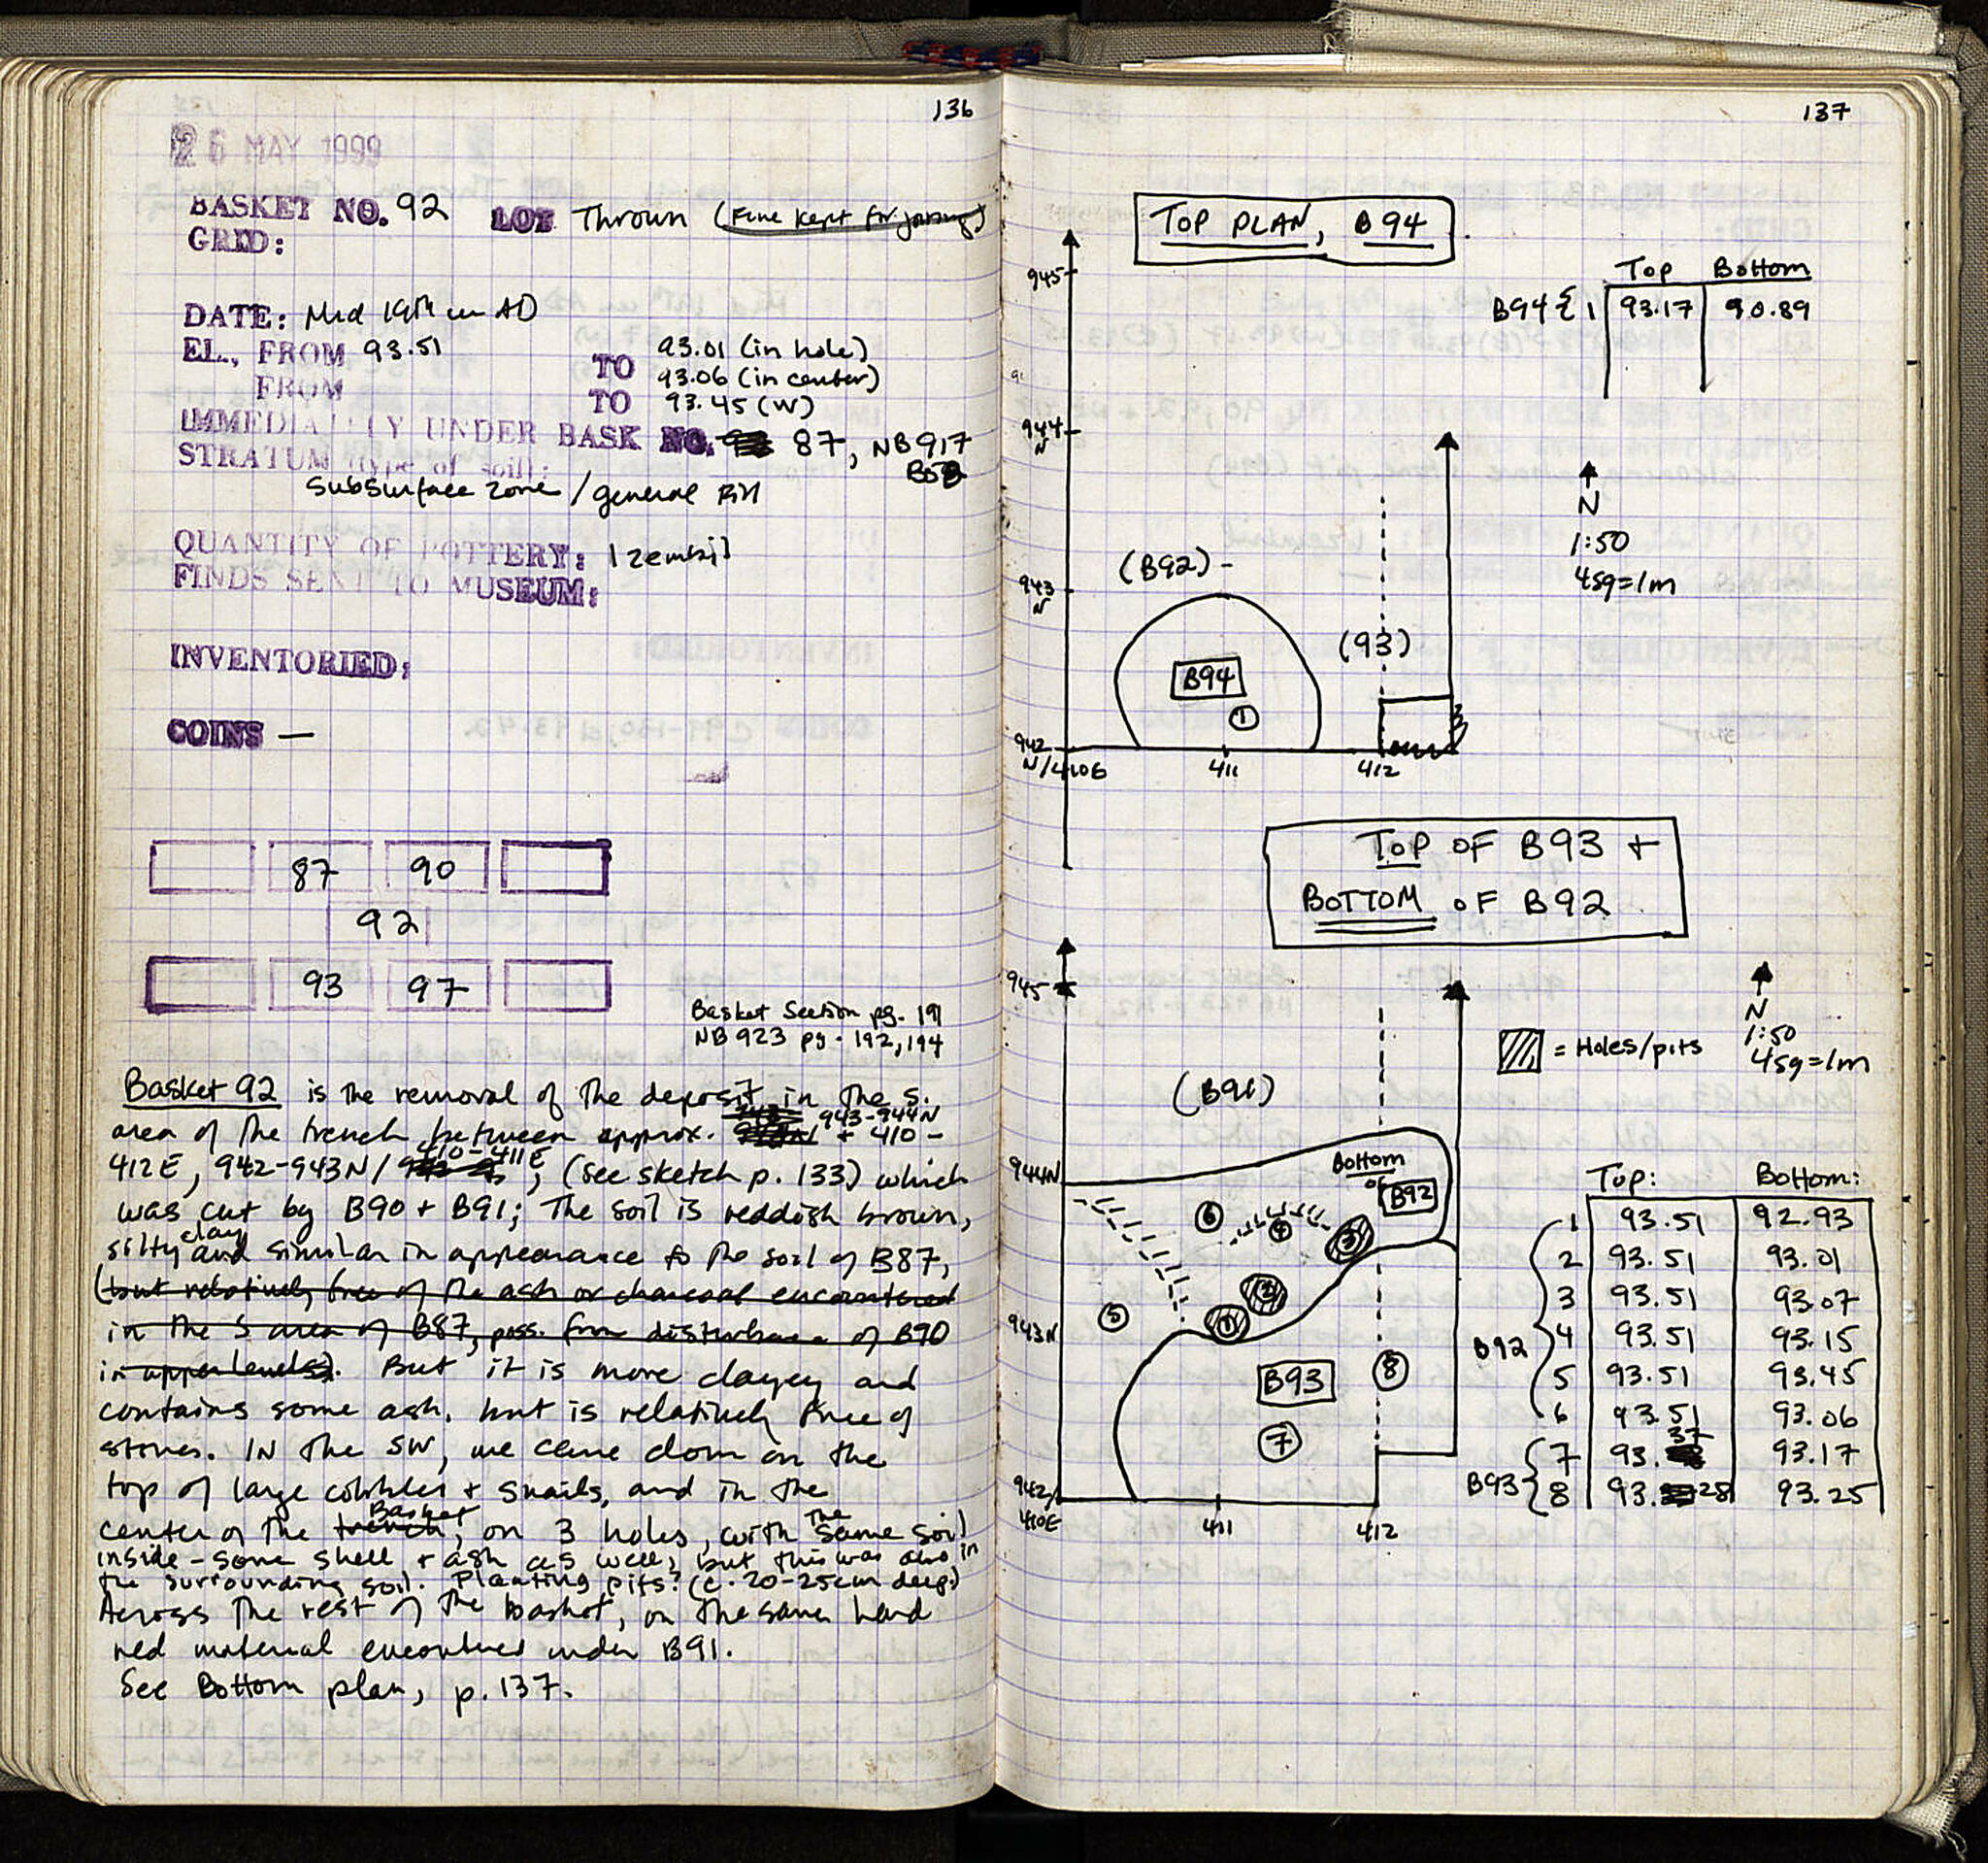 136
26 MAY 1999
BASKET NO. 92 LOT Thrown (Fine kept for joining)
GRID:
DATE: Mid 19th cen AD
EL., FROM 93.51 TO 93.01 (in hole)
93.06 (in center)
FROM TO 93.45 (W)
IMMEDIATELY UNDER BASK NO. 87, NB 917
B58
STRATUM (type of soil):
Subsurface zone / general fill
QUANTITY OF POTTERY: 1 zembil
FINDS SENT TO MUSEUM:
INVENTORIED:
COINS —
87 90
92
93 97
Basket Section pg. 191
NB 923 pg. 192, 194
Basket 92 is the removal of the deposit in the S.
area of the trench between approx. 943-944N + 410-
412E, 942-943N / 410-411E, (see sketch p. 133) which
was cut by B90 + B91; The soil is reddish brown,
silty clay and similar in appearance to the soil of B87,
(but relatively free of the ash or charcoal encountered
in the S area of B87, poss. from disturbance of B90
in upper levels). But it is more clayey and
contains some ash, but is relatively free of
stones. IN the SW, we came down on the
top of large cobbles + snails, and in the
center of the trench Basket, on 3 holes, with the same soil
inside - some shell + ash as well, but this was also in
the surrounding soil. Planting pits? (c. 20-25cm deep)
Across the rest of the basket, on the same hard
red material encountered under B91.
See Bottom plan, p. 137.
137
TOP PLAN, B94
Top Bottom
B94 { 1 93.17 90.89
945
944
N
N
1:50
4sq=1m
(B92)
943
N
(93)
B94
1
942
N/410E 411 412
TOP OF B93 +
BOTTOM OF B92
945
N
1:50
4sq=1m
= Holes/pits
(B91)
944N
Bottom
of B92
6 4 3
2
5 1
943N
B93 8
7
942/
410E 411 412
Top: Bottom:
1 93.51 92.93
2 93.51 93.01
3 93.51 93.07
B92 4 93.51 93.15
5 93.51 93.45
6 93.51 93.06
7 93.37 93.17
B93 8 93.28 93.25